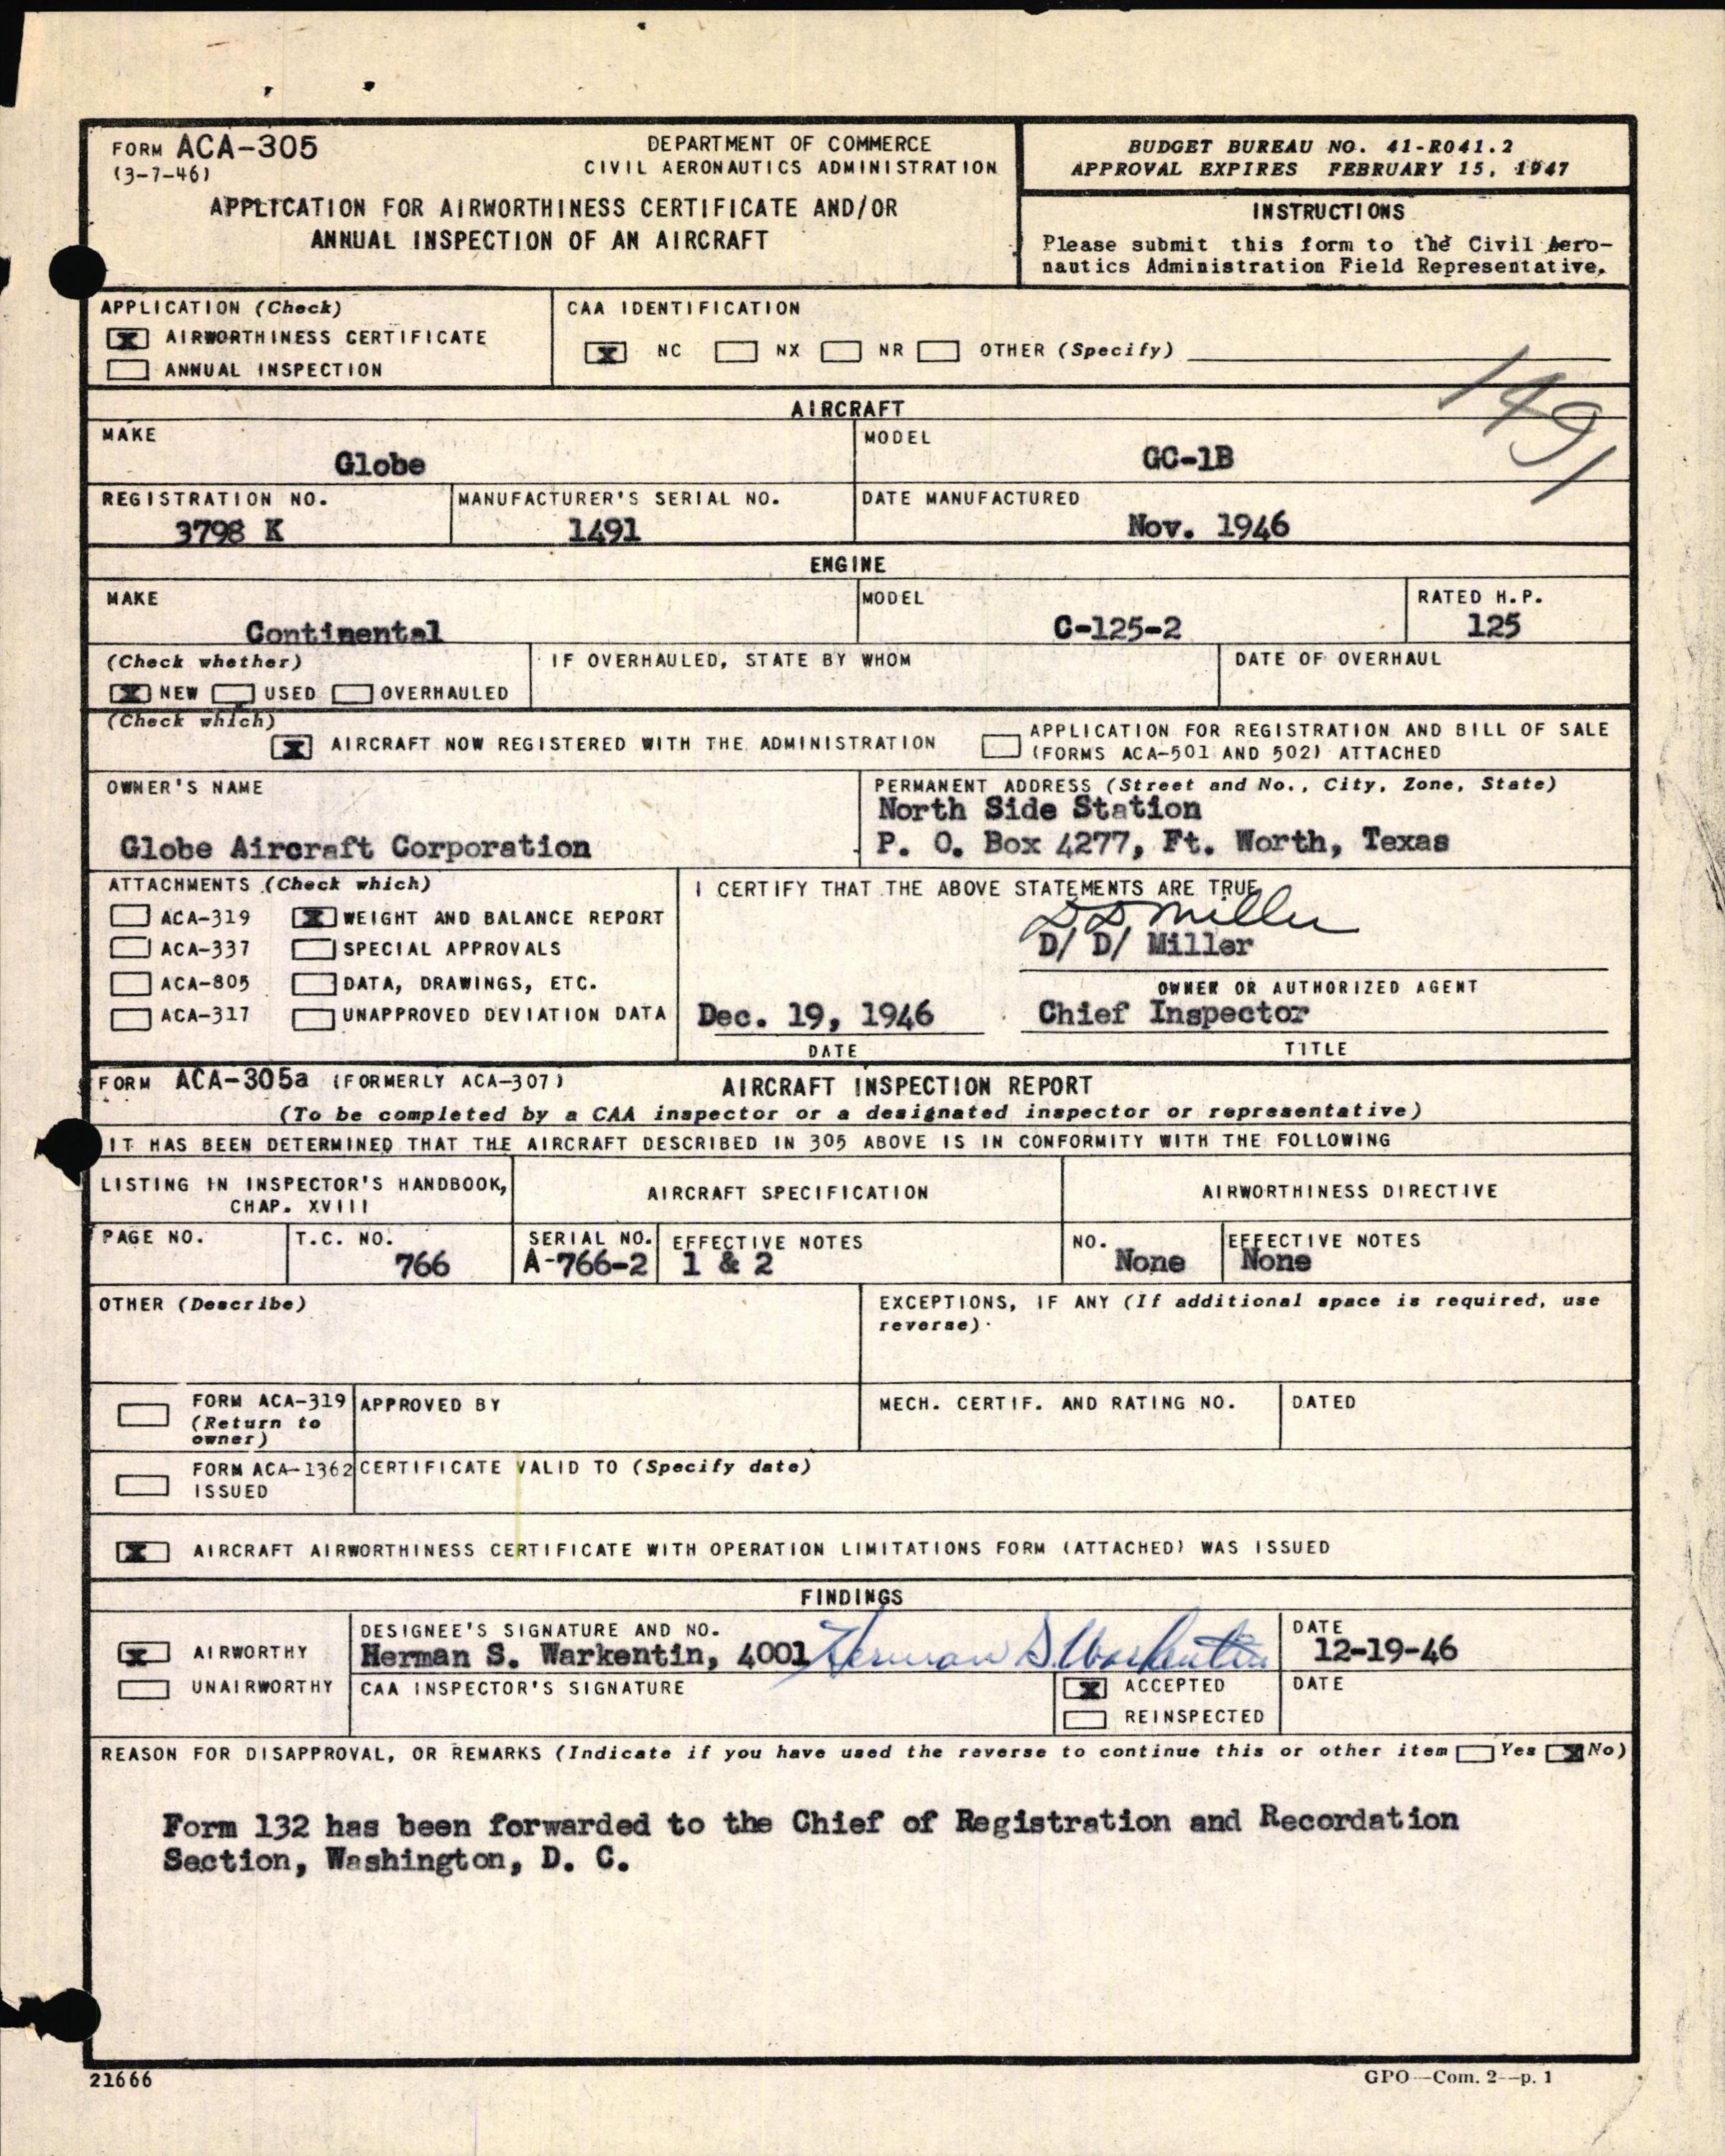 FORM ACA-305
(3-7-46)
DEPARTMENT OF COMMERCE
CIVIL AERONAUTICS ADMINISTRATION
APPLICATION FOR AIRWORTHINESS CERTIFICATE AND/OR
ANNUAL INSPECTION OF AN AIRCRAFT
BUDGET BUREAU NO. 41-R041.2
APPROVAL EXPIRES FEBRUARY 15, 1947
INSTRUCTIONS
Please submit this form to the Civil Aero-
nautics Administration Field Representative.
APPLICATION (Check)
X AIRWORTHINESS CERTIFICATE
ANNUAL INSPECTION
CAA IDENTIFICATION
X NC NX NR OTHER (Specify)
1491
AIRCRAFT
MAKE
Globe
MODEL
GC-1B
REGISTRATION NO.
3798 K
MANUFACTURER'S SERIAL NO.
1491
DATE MANUFACTURED
Nov. 1946
ENGINE
MAKE
Continental
MODEL
C-125-2
RATED H.P.
125
(Check whether)
X NEW USED OVERHAULED
IF OVERHAULED, STATE BY WHOM
DATE OF OVERHAUL
(Check which)
X AIRCRAFT NOW REGISTERED WITH THE ADMINISTRATION
APPLICATION FOR REGISTRATION AND BILL OF SALE
(FORMS ACA-501 AND 502) ATTACHED
OWNER'S NAME
Globe Aircraft Corporation
PERMANENT ADDRESS (Street and No., City, Zone, State)
North Side Station
P. O. Box 4277, Ft. Worth, Texas
ATTACHMENTS (Check which)
ACA-319 X WEIGHT AND BALANCE REPORT
ACA-337 SPECIAL APPROVALS
ACA-805 DATA, DRAWINGS, ETC.
ACA-317 UNAPPROVED DEVIATION DATA
I CERTIFY THAT THE ABOVE STATEMENTS ARE TRUE
D D Miller
D/ D/ Miller
OWNER OR AUTHORIZED AGENT
Dec. 19, 1946
DATE
Chief Inspector
TITLE
FORM ACA-305a (FORMERLY ACA-307) AIRCRAFT INSPECTION REPORT
(To be completed by a CAA inspector or a designated inspector or representative)
IT HAS BEEN DETERMINED THAT THE AIRCRAFT DESCRIBED IN 305 ABOVE IS IN CONFORMITY WITH THE FOLLOWING
LISTING IN INSPECTOR'S HANDBOOK,
CHAP. XVIII
AIRCRAFT SPECIFICATION
AIRWORTHINESS DIRECTIVE
PAGE NO.
T.C. NO.
766
SERIAL NO.
A-766-2
EFFECTIVE NOTES
1 & 2
NO.
None
EFFECTIVE NOTES
None
OTHER (Describe)
EXCEPTIONS, IF ANY (If additional space is required, use
reverse)
FORM ACA-319
(Return to
owner)
APPROVED BY
MECH. CERTIF. AND RATING NO.
DATED
FORM ACA-1362
ISSUED
CERTIFICATE VALID TO (Specify date)
X AIRCRAFT AIRWORTHINESS CERTIFICATE WITH OPERATION LIMITATIONS FORM (ATTACHED) WAS ISSUED
FINDINGS
X AIRWORTHY
UNAIRWORTHY
DESIGNEE'S SIGNATURE AND NO.
Herman S. Warkentin, 4001 Herman S. Warkentin
DATE
12-19-46
CAA INSPECTOR'S SIGNATURE
X ACCEPTED
REINSPECTED
DATE
REASON FOR DISAPPROVAL, OR REMARKS (Indicate if you have used the reverse to continue this or other item Yes X No)
Form 132 has been forwarded to the Chief of Registration and Recordation
Section, Washington, D. C.
21666
GPO—Com. 2--p. 1